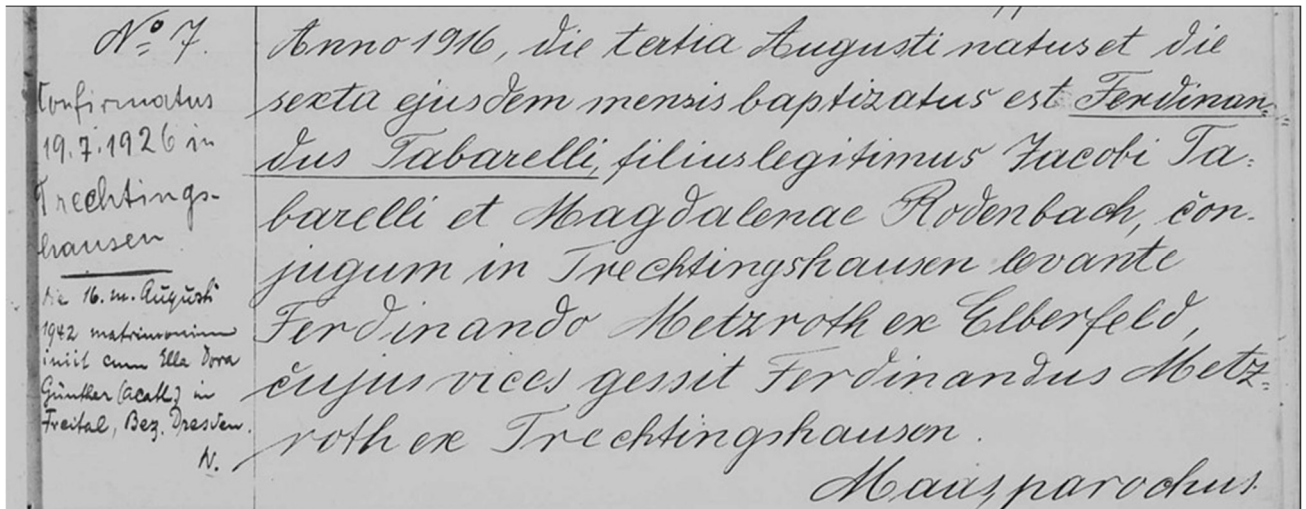 No 7.
Confirmatus
19.7.1926 in
Trechtings-
hausen
die 16. m. Augusti
1942 matrimonium
iniit cum Ella Dora
Günther (acath.) in
Freital, Bez. Dresden.
N.
Anno 1916, die tertia Augusti natus et die
sexta ejusdem mensis baptizatus est Ferdinan=
dus Tabarelli, filius legitimus Jacobi Ta=
barelli et Magdalenae Rodenbach, con-
jugum in Trechtingshausen levante
Ferdinando Metzroth ex Elberfeld,
cujus vices gessit Ferdinandus Metz=
roth ex Trechtingshausen.
Maas, parochus.